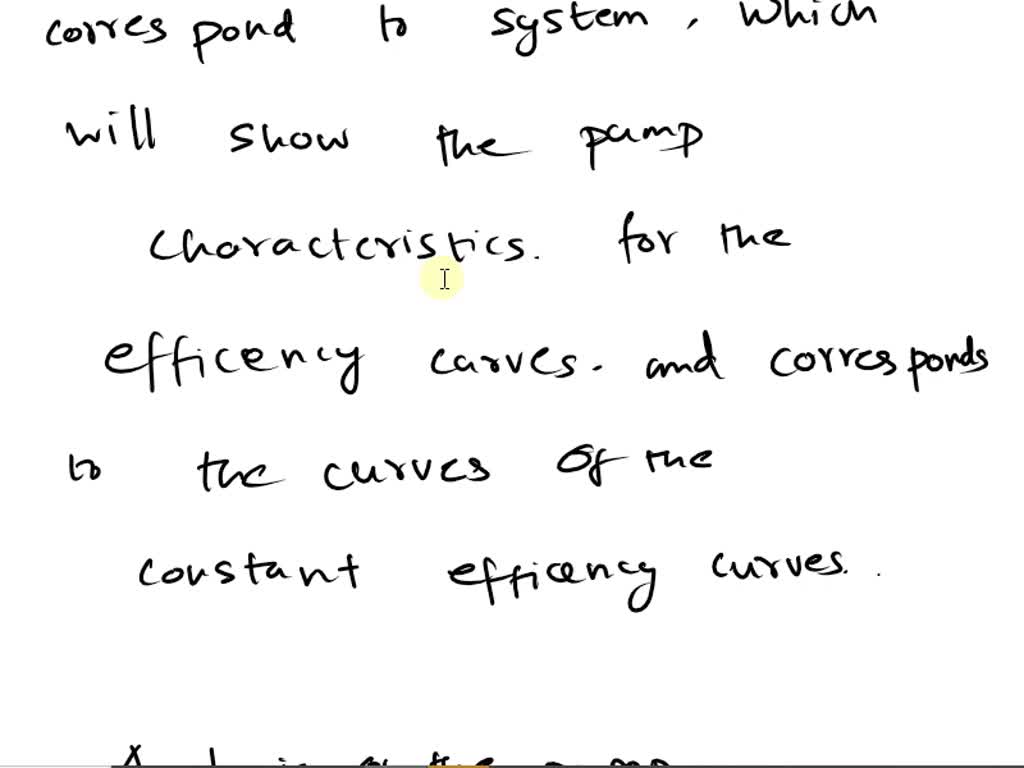 corres pond to system, which
will show the pump
characteristics. for the
efficency carves. and corresponds
to the curves of the
constant efficency curves.